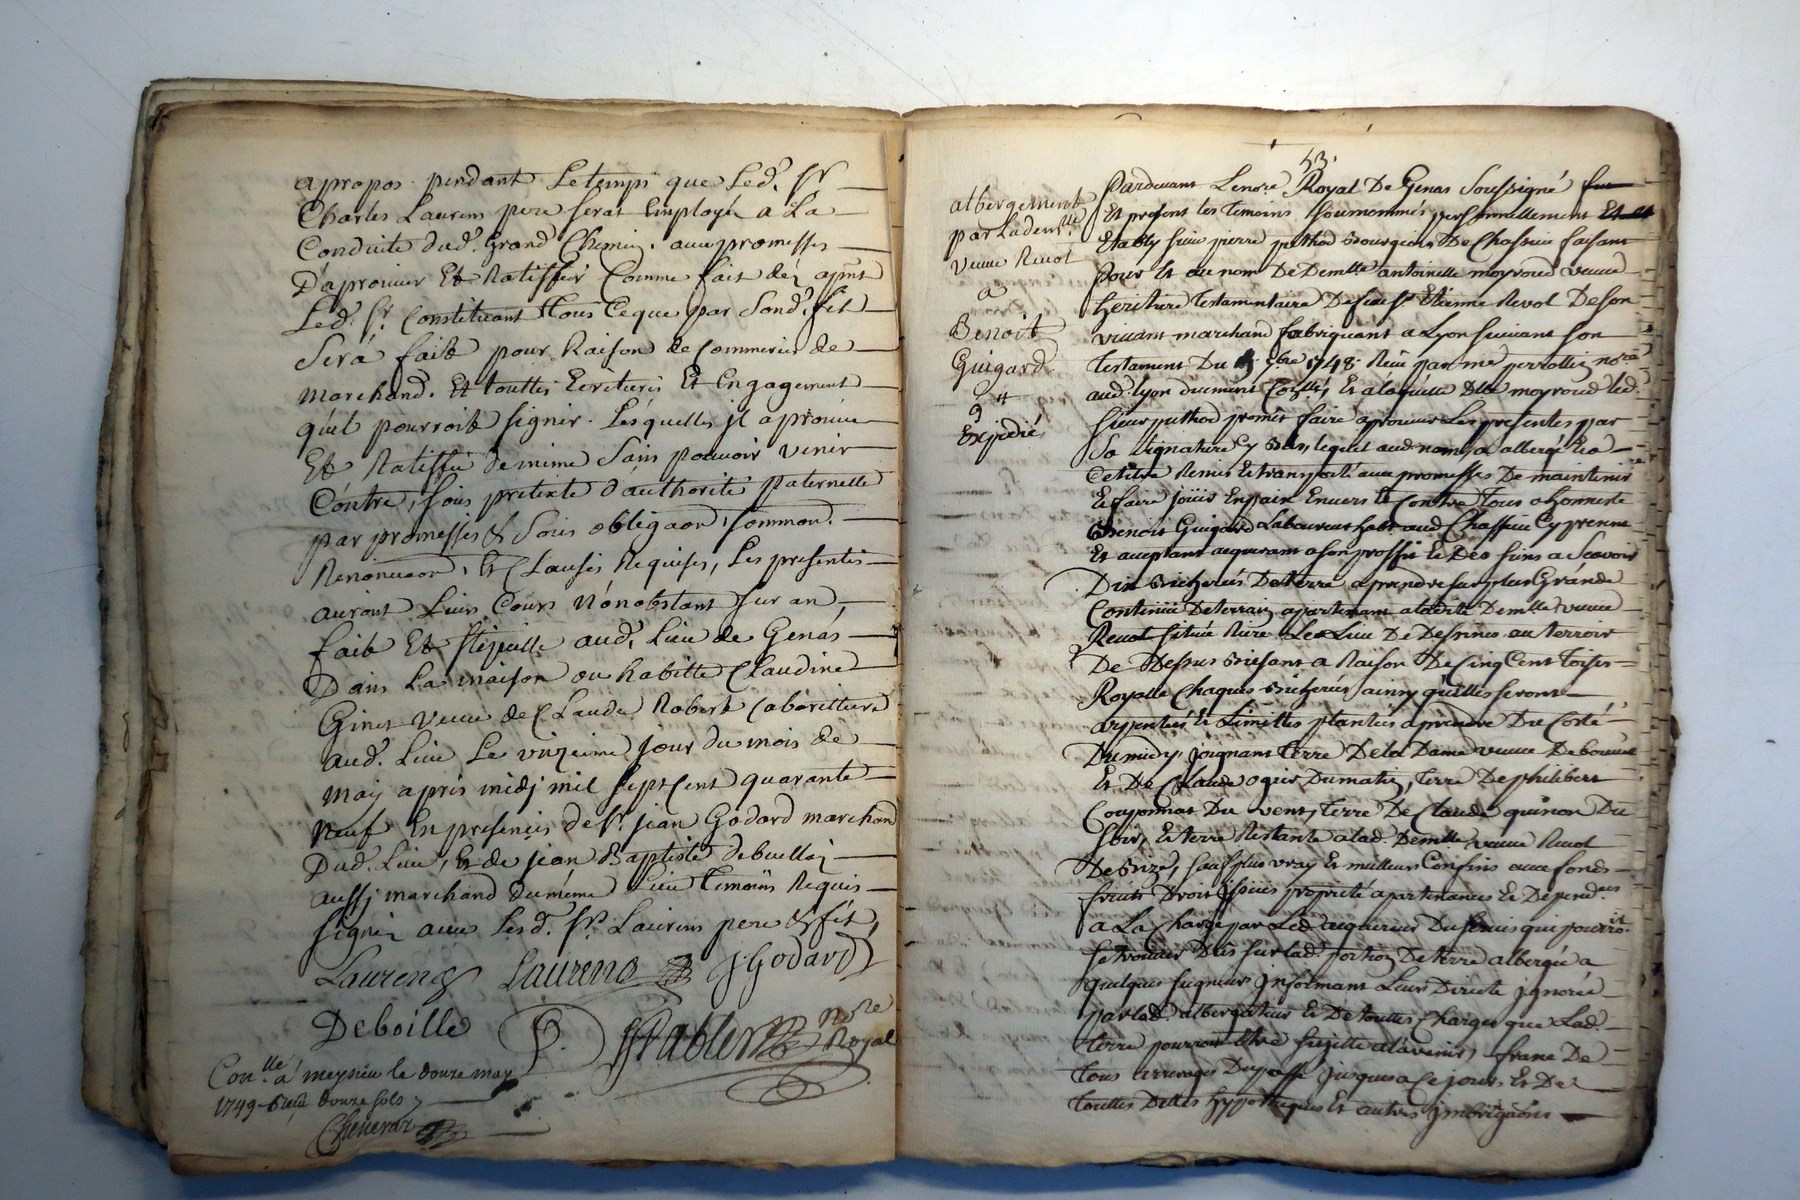 apropos pendant Letemps que Led. Sr
Charles Laurens pere serat Employé a La
Conduite dud. Grand Chemin. avec promesses
D'aprouver Et Ratiffier Comme fait déz apnt
Led. Sr. Constituant Tous Ceque par Sond. fils
Será fait pour Raison de Commerce de
marchand. Et touttes Ecritures Et Engagement
qu'il pourroit signer. Lesquelles jl aprouve
Et Ratiffie de mime Sans pouvoir venir
Contre, sous pretexte d'authorité paternelle
par promesses & Sous obligaon, sommon.
Renonciaon, Et Clauses Requises, Les presentes
auront Leurs Cours nonobstant Sur an,
fait Et stipullé aud. Lieu de Genas
Dans La maison ou habitte Claudine
Ginet veuve de Claude Robert Cabarettiere
aud. Lieu Le jour du mois de
may apres midj mil sept Cent quarante
neuf En presences de Sr. jean Godard marchand
Dud. Lieu, Et de jean Baptiste debuellaj
aussj marchand du méme Lieu Temoins Requis
signéz avec Lesd. Srs. Laurens pere & fils
Laurens Laurens J. Godard
Deboille P. nore
Royal
Con.llé a meysieu le douze may
1749 Reçu douze sols
Chenevaz
53.
albergement
par Lad. demlle
veuve Revol
a
Benoit
Guigard
Expedié
Pardevant Lenore Royal De Genas Soussigné
Et presents les Temoins Sournommés personnellement
Etably sieur pierre pithod Bourgeois De Chassieu faisant
Pour Et au nom De Demlle antoinette moyroud veuve
heritiere Testamentaire De feu Sr Etienne Revol De son
vivant marchand fabriquant a Lyon suivant son
Testament Du 7bre 1748. Reçu par me perrollin nore
aud. Lyon duement Con.llé, Et a laquelle Dlle moyroud led.
sieur pithod promet faire aprouver Les presentes par
Sa Signature Cy Bas, lequel aud. nom, a albergé Et a
Cetitre Remis Et transporté avec promesses De maintenir
Et faire jouir En paix Envers Et Contre Tous a honneste
Benoit Guigard Laboureur habt. aud. Chassieu Cy present
Et acceptant acquerant a son proffit Et Des siens a Scavoir
Dix Bicherées De terre a prendre sur plus Grande
Contenüe De terrain apartenant a ladite Demlle veuve
Revol située Riere Le Lieu De Desrines au terroir
De Dessus Bresant a Raison De Cinq Cent Toises
Royalle Chaque Bicherée, ainsy qu'elles seront
arpentées Et Limittes plantées a prendre Du Costé
Du midy, joignant Terre De la Dame veuve
Et De Claude ogier Du matin, terre De philibert
Couponnat Du vent, Terre De Claude quinon Du
Soir, Et terre Restante a lad. Demlle veuve Revol
De Bize, sauf plus vray Et meilleurs Confins avec fonds
fruits Droit Issües proprieté apartenances Et Depend.ces
a La Charge par Led. acquereur Du Servis qui pourroit
se trouver Dûs sur lad. portion De terre albergée a
quelques seigneurs Informant Leur Directe Ignorée
par led. albergateur Et De touttes Charges que Lad.
terre pourroit Etre sujette a l'avenir, franc De
Tous arrerages Du passé jusques a Ce jour, Et De
touttes Dettes hypotheques Et autres Imbrigaons